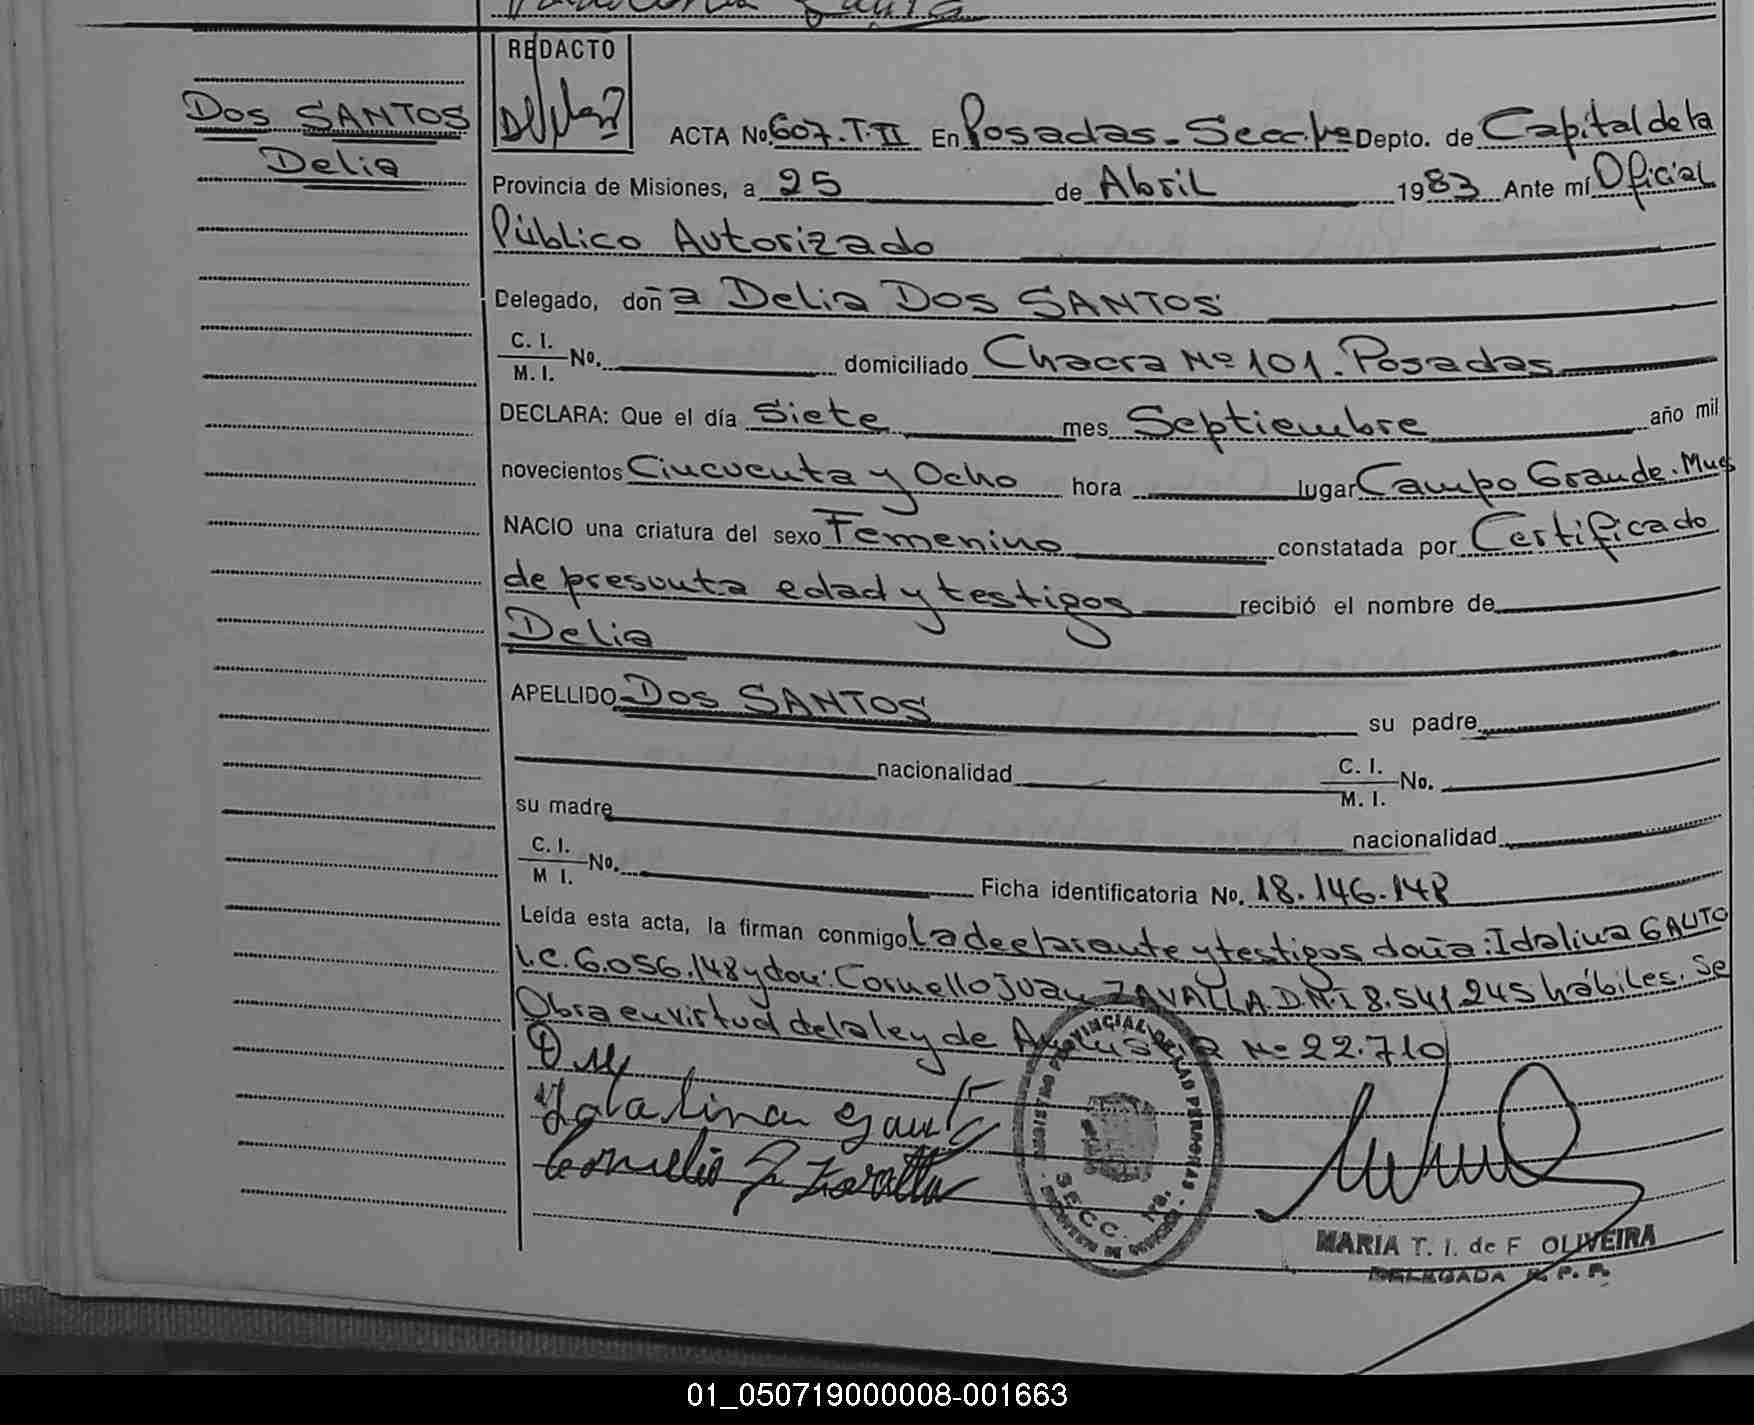 REDACTO
Dos SANTOS
Delia
ACTA No. 607.T.II En Posadas - Secc. 1ra Depto. de Capital de la
Provincia de Misiones, a 25 de Abril 1983 Ante mí Oficial
Público Autorizado
Delegado, doña Delia Dos SANTOS
C. I.
M. I. No. domiciliado Chacra Nº 101. Posadas
DECLARA: Que el día Siete mes Septiembre año mil
novecientos Cincuenta y Ocho hora lugar Campo Grande. Mnes
NACIO una criatura del sexo Femenino constatada por Certificado
de presunta edad y testigos recibió el nombre de
Delia
APELLIDO Dos SANTOS su padre
nacionalidad C. I.
M. I. No.
su madre nacionalidad
C. I.
M I. No. Ficha identificatoria No. 18.146.148
Leída esta acta, la firman conmigo La declarante y testigos doña: Idalina GAUTO
L.C. 6.056.148 y don: Cornelio Juan ZAVALLA D.N.I 8.541.245 hábiles. Se
Obra en virtud de la ley de Amnistia Nº 22.710
Idalina Gauto
Cornelio J Zavalla
REGISTRO PROVINCIAL DE LAS PERSONAS
SECC.
MARIA T. I. de F OLIVEIRA
DELEGADA R. P. P.
01_050719000008-001663